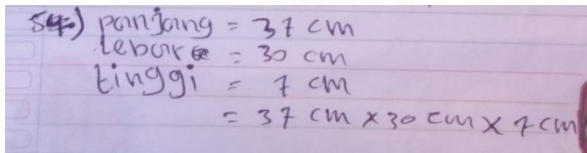 54.) panjang = 37 cm
lebar = 30 cm
tinggi = 7 cm
= 37 cm x 30 cm x 7 cm